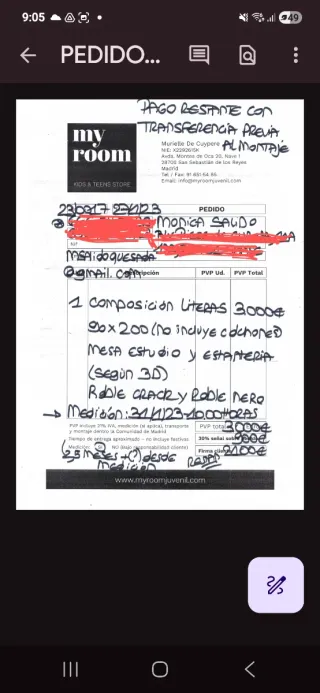 9:05
49
PEDIDO...
PAGO RESTANTE CON
TRANSFERENCIA PREVIA
AL MONTAJE
my
room
KIDS & TEENS STORE
Murielle De Cuypere
NIE: X2282615K
Avda. Montes de Oca 20, Nave 1
28703 San Sebastián de los Reyes
Madrid
Tel. / Fax: 91 651 54 85
Email: info@myroomjuvenil.com
23/0017 27/1/23
PEDIDO
MONICA SALIDO
msalidoquesada
@gmail.com
Descripción PVP Ud. PVP Total
1 COMPOSICIÓN LITERAS 3000€
90x200 (no incluye colchones)
MESA ESTUDIO Y ESTANTERIA
(SEGÚN 3D)
ROBLE CRACK Y ROBLE NERO
→ Medición: 31/1/23-10.00HORAS
PVP incluye 21% IVA, medición (si aplica), transporte
y montaje dentro la Comunidad de Madrid
PVP total 3000€
Tiempo de entrega aproximado – no incluye festivos
30% señal 900€
Medición: SI NO (bajo responsabilidad cliente)
2100€
(2,5 meses +(-) desde
medición
www.myroomjuvenil.com